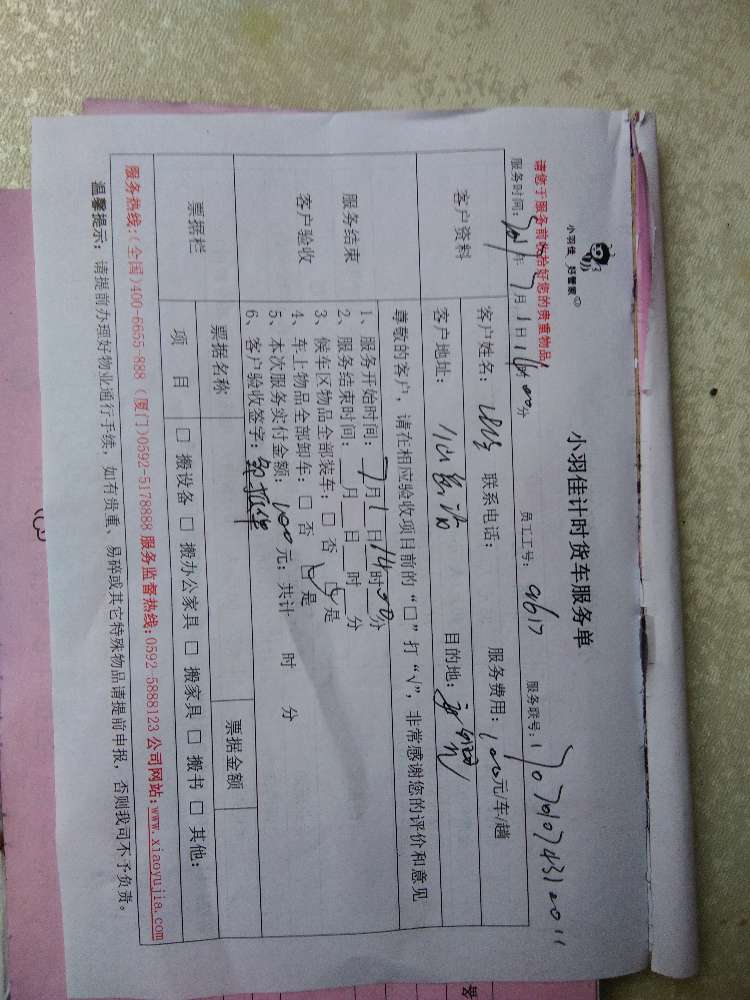 小羽佳 好管家
小羽佳计时货车服务单
请您于服务前收拾好您的贵重物品
服务时间: 年 7月1日14时00分 员工工号: 9617 服务联号:
客户资料
客户姓名: 联系电话: 服务费用: 100元/车/趟
客户地址: 目的地:
尊敬的客户,请在相应验收项目前的“□”打“√”,非常感谢您的评价和意见
服务结束
客户验收
1、服务开始时间: 7月1日14时00分
2、服务结束时间: 月 日 时 分
3、候车区物品全部装车: □ 否 □ 是
4、车上物品全部卸车: □ 否 □ 是
5、本次服务实付金额: 100元; 共计 时 分
6、客户验收签字:
票据栏
票据名称 票据金额
项 目 □ 搬设备 □ 搬办公家具 □ 搬家具 □ 搬书 □ 其他:
服务热线:(全国)400-6655-888 (厦门)0592-5178888 服务监督热线:0592-5888123 公司网站:www.xiaoyujia.com
温馨提示: 请提前办理好物业通行手续, 如有贵重、易碎或其它特殊物品请提前申报, 否则我司不予负责。